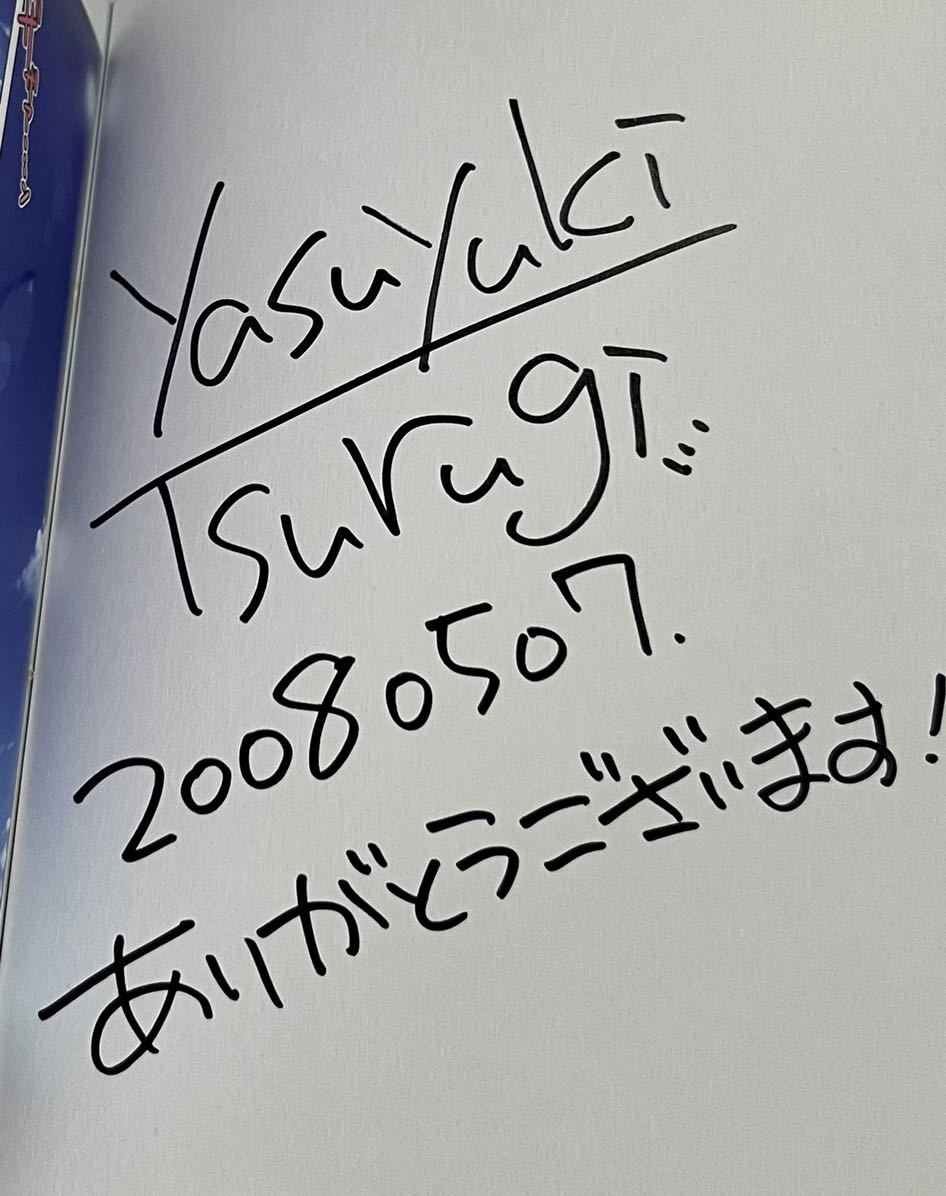 Yasuyuki
Tsurugi
20080507.
ありがとうございます!